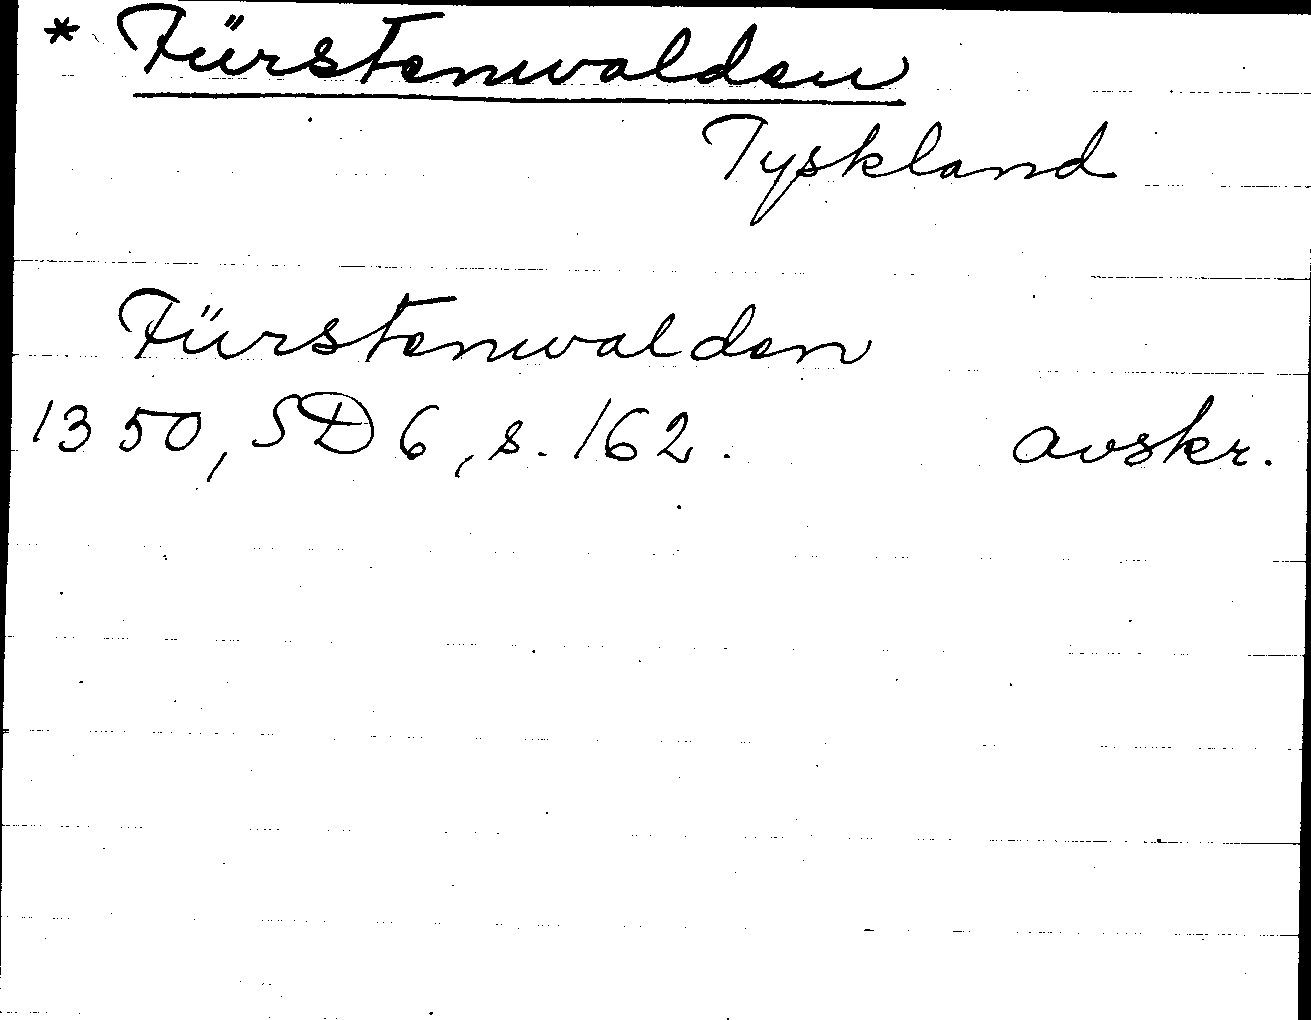 * Fürstenwalden
Tyskland
Fürstenwalden
1350, SD 6, s. 162. avskr.